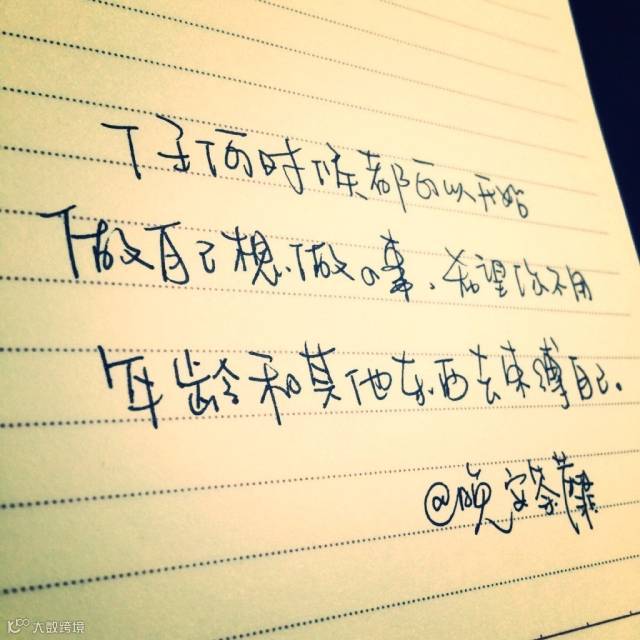 任何时候都可以开始
做自己想做的事、希望你不用
年龄和其他东西去束缚自己。
@晚安荼蘼
大数跨境